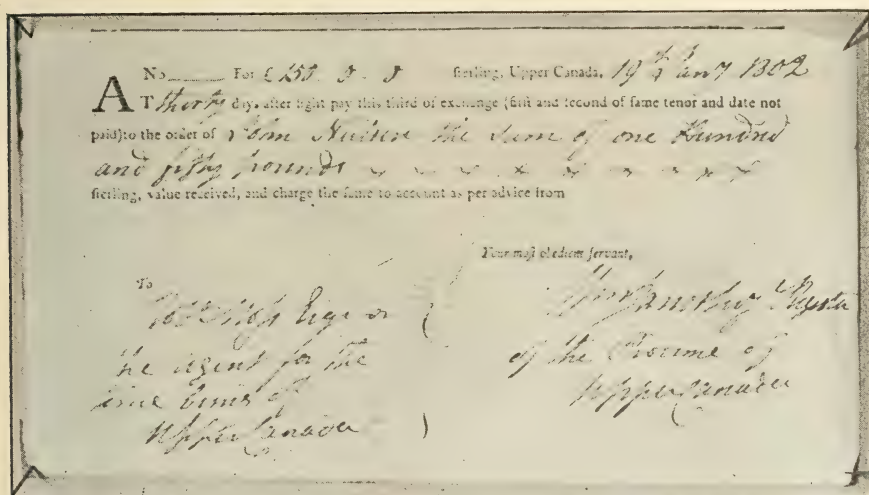 No____ For £150 „ 0 „ 0 ſterling, Upper Canada, 19th Jany 1802
AT thirty days after ſight pay this third of exchange (firſt and ſecond of ſame tenor and date not
paid) to the order of John the Sum of one Hundred
and fifty pounds x x x x x x x x x
ſterling, value received, and charge the ſame to account as per advice from
Your moſt obedient ſervant,
To
Esqr or
the agent for the
of
Upper Canada
Wm Jarvis
of the Province of
Upper Canada